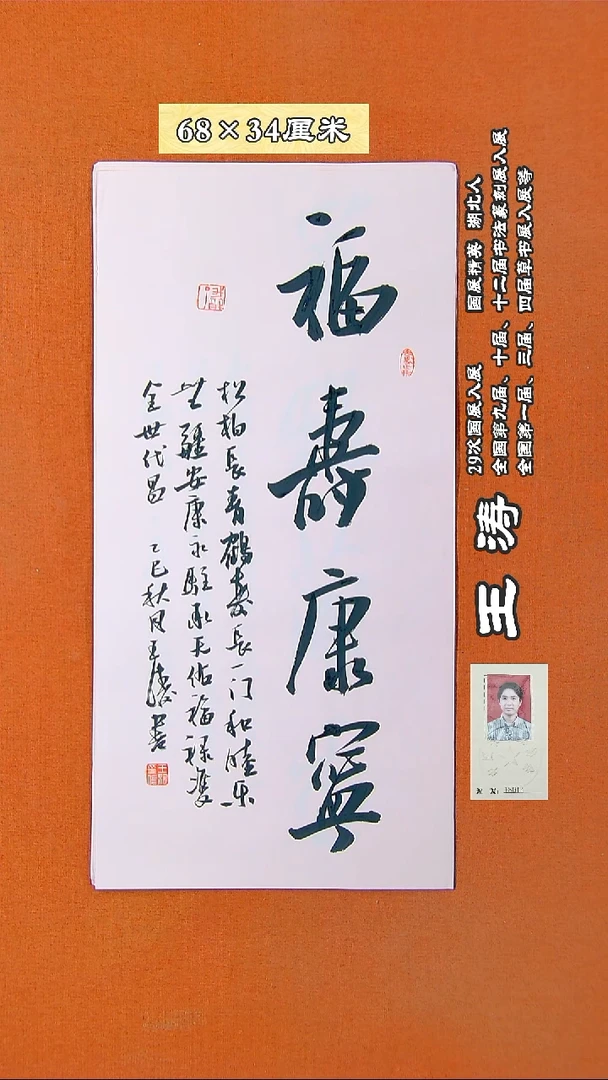 68×34厘米
福壽康寧
松柏長青鶴壽長一门和睦乐
無疆安康永駐承天佑福禄雙
全世代昌 乙巳秋月王涛書
29次国展入展 国展精英 湖北人
全国第九届、十届、十二届书法篆刻展入展
全国第一届、三届、四届草书展入展等
王涛